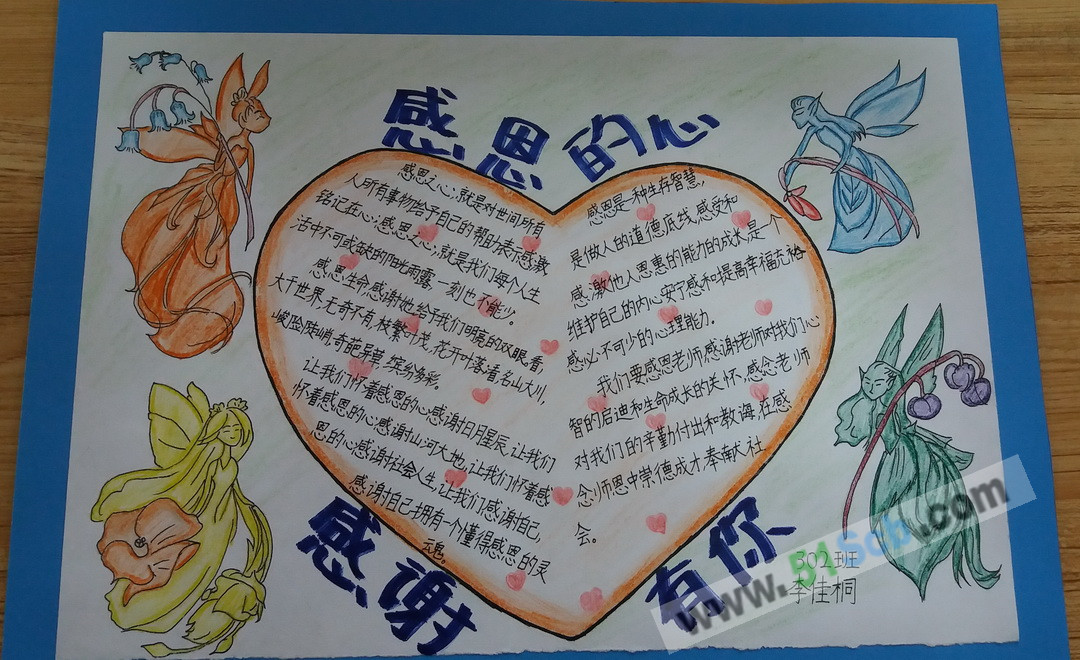 感恩的心
感恩之心;就是对世间所有
人所有事物给予自己的帮助表示感激
铭记在心;感恩之心;就是我们每个人生
活中不可或缺的阳光雨露,一刻也不能少。
感恩生命感谢他给予我们明亮的双眼,看
大千世界,无奇不有,枝繁叶茂,花开叶落看,名山大川,
峻险陡峭,奇葩异草,缤纷多彩。
让我们怀着感恩的心;感谢日月星辰,让我们
怀着感恩的心;感谢山河大地,让我们怀着感
恩的心;感谢社会人生,让我们感谢自己,
感谢自己拥有一个懂得感恩的灵
魂。
感恩是一种生存智慧,
是做人的道德底线,感受和
感激他人恩惠的能力的成长是一个
维护自己的内心安宁感和提高幸福充裕
感心不可少的心理能力.
我们要感恩老师,感谢老师对我们心
智的启迪和生命成长的关怀,感念老师
对我们的辛勤付出和教诲,在感
念师恩中崇德成才奉献社
会。
感谢有你
502班
李佳桐
www.51Scb.com